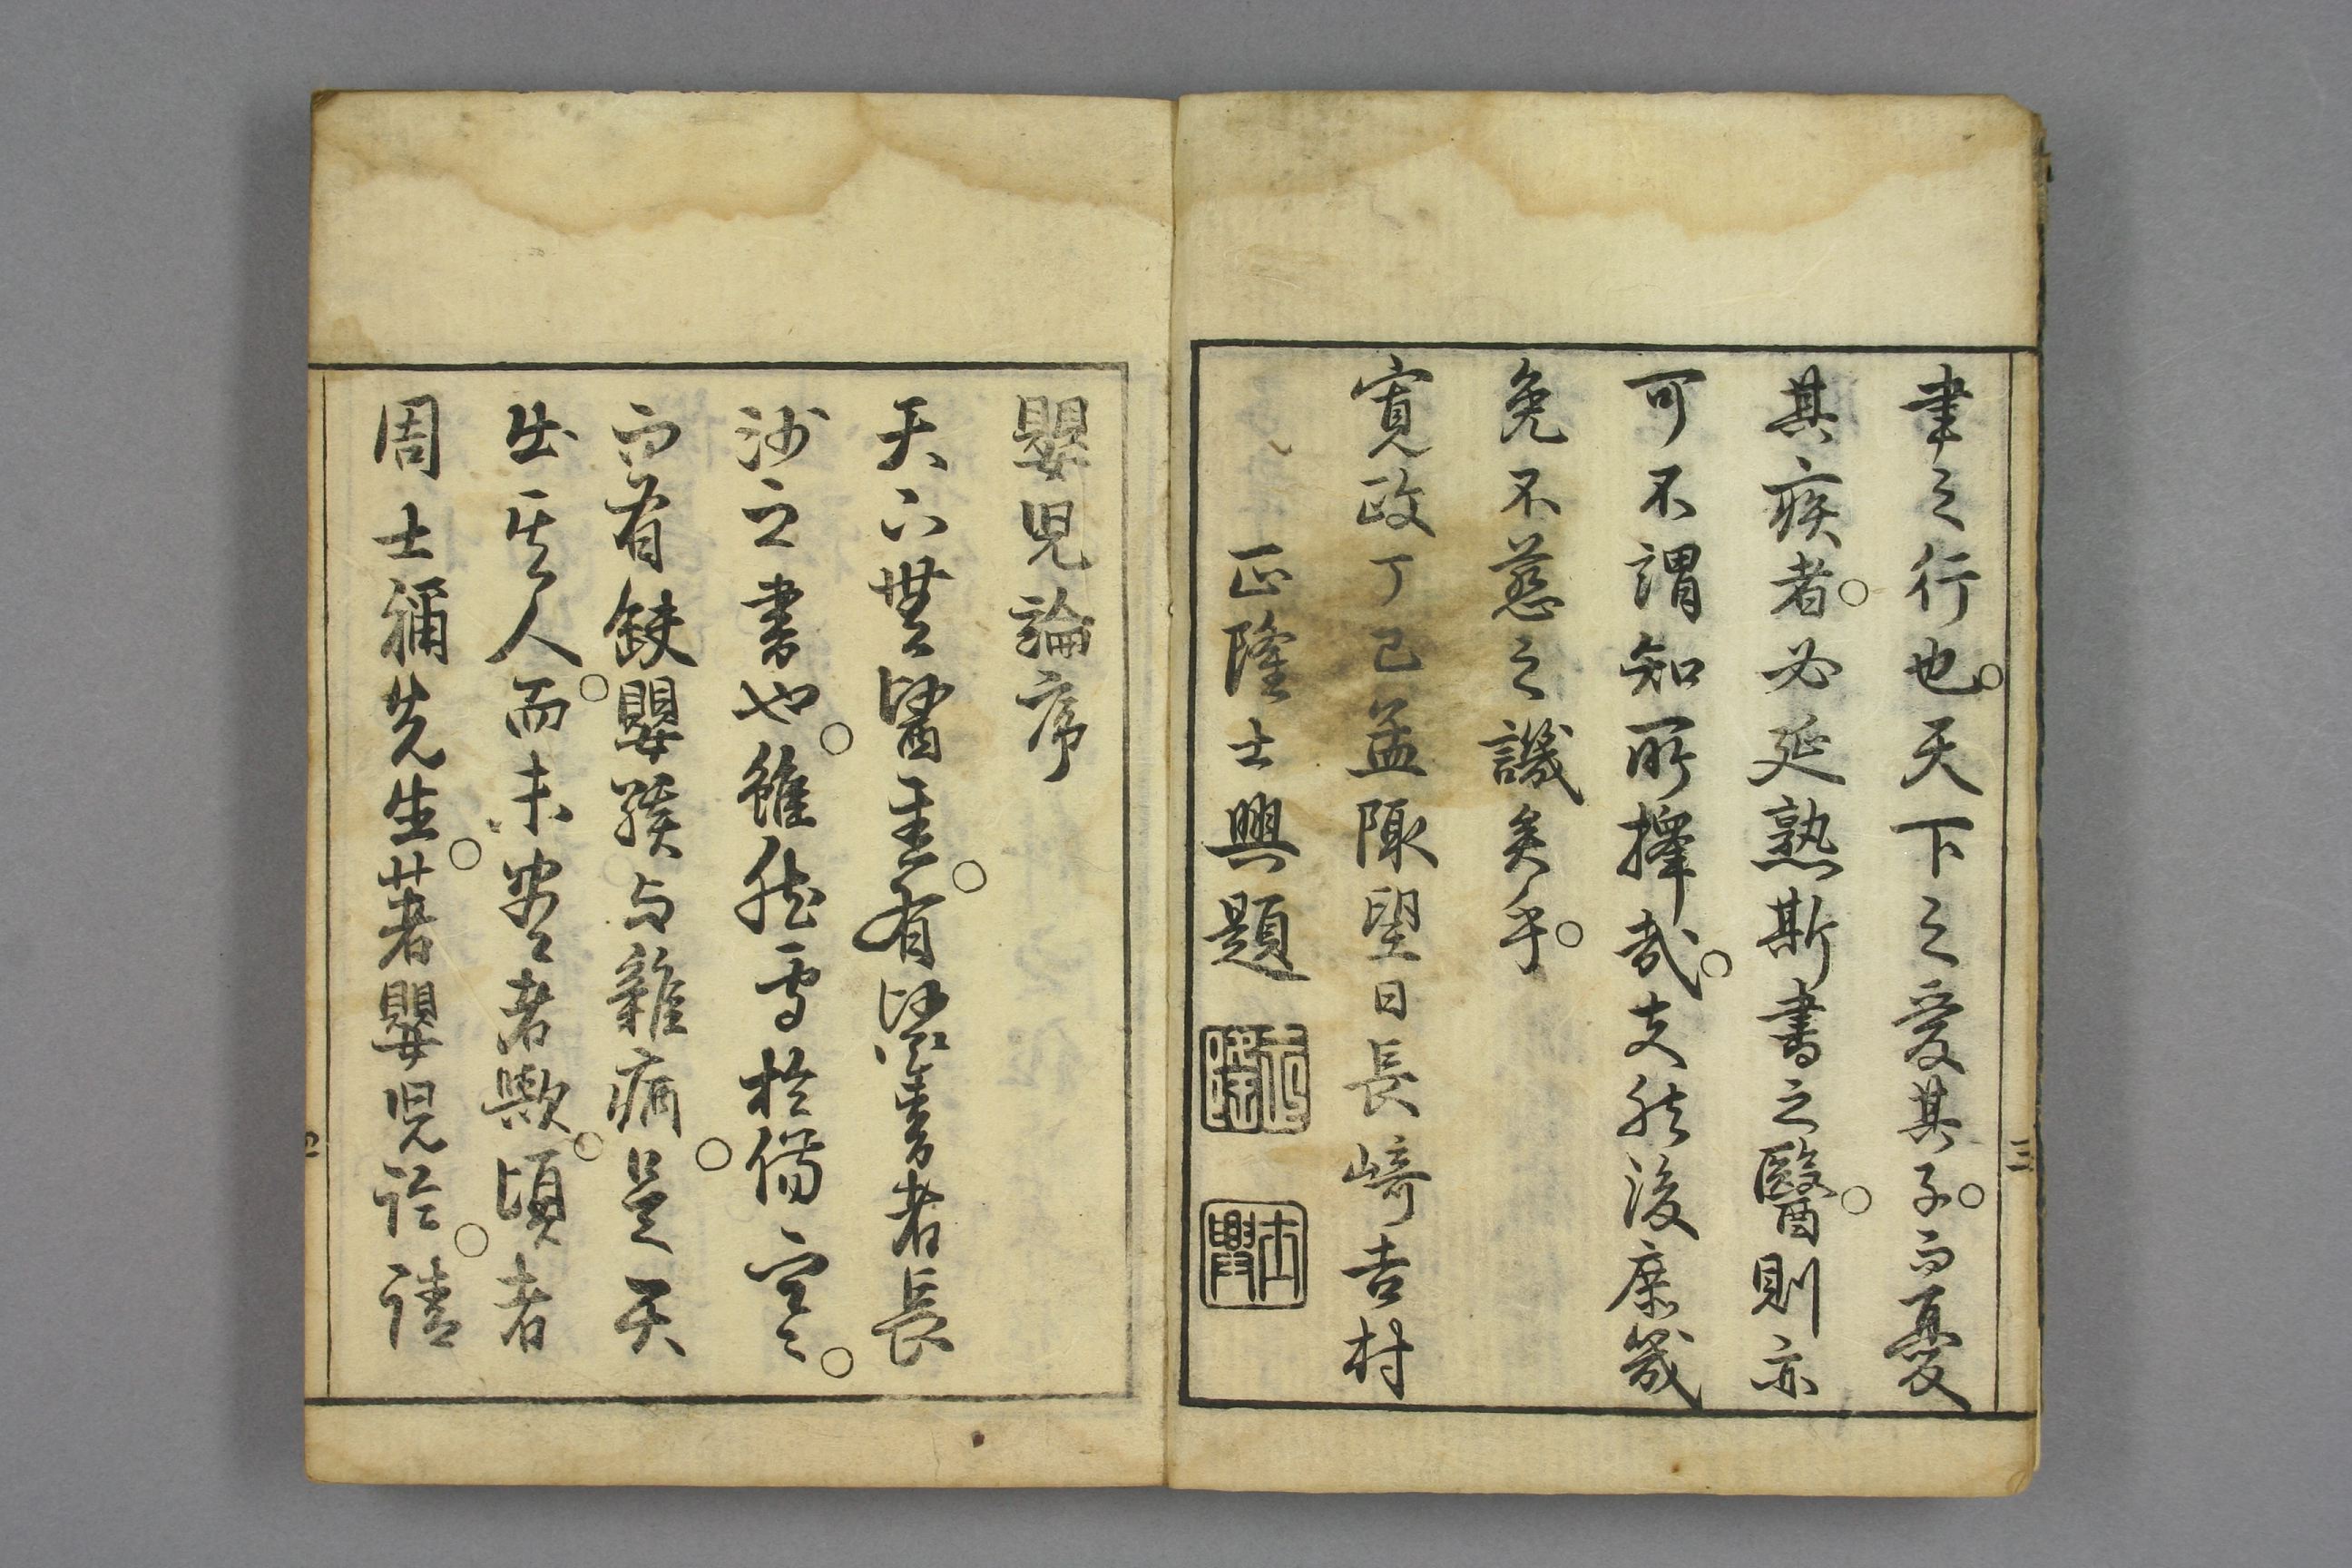 書之行也。天下之愛其子。而憂
其疾者。必延熟斯書之醫。則亦
可不謂知所擇哉。夫然後庶幾
免不慈之譏矣乎。
寬政丁巳孟陬望日長崎吉村
正隆士興題
正隆
士興
三
嬰兒論序
天下無醫王。有醫書者長
沙之書也。雖然專於傷寒。
而有缺嬰孩与雜病。是天
生其人。而未盡者歟。頃者
周士禰先生。著嬰兒論。請